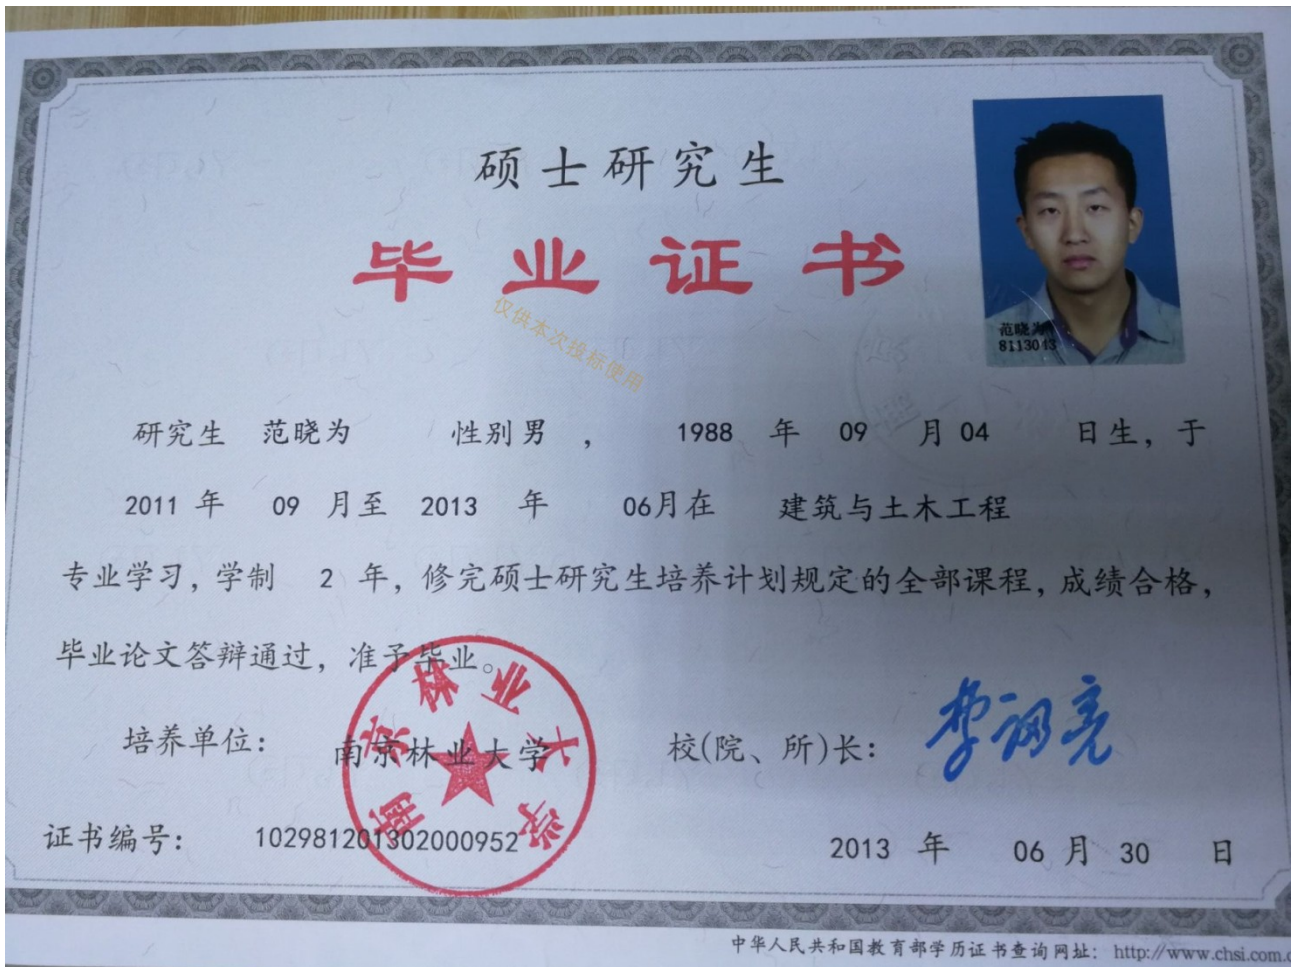 硕士研究生
毕业证书
仅供本次投标使用
范晓为
8113043
研究生 范晓为 性别男 , 1988 年 09 月 04 日生, 于
2011 年 09 月至 2013 年 06月在 建筑与土木工程
专业学习, 学制 2 年, 修完硕士研究生培养计划规定的全部课程, 成绩合格,
毕业论文答辩通过, 准予毕业。
南京林业大学
培养单位: 南京林业大学 校(院、所)长:
证书编号: 102981201302000952 2013 年 06 月 30 日
中华人民共和国教育部学历证书查询网址: http://www.chsi.com.c